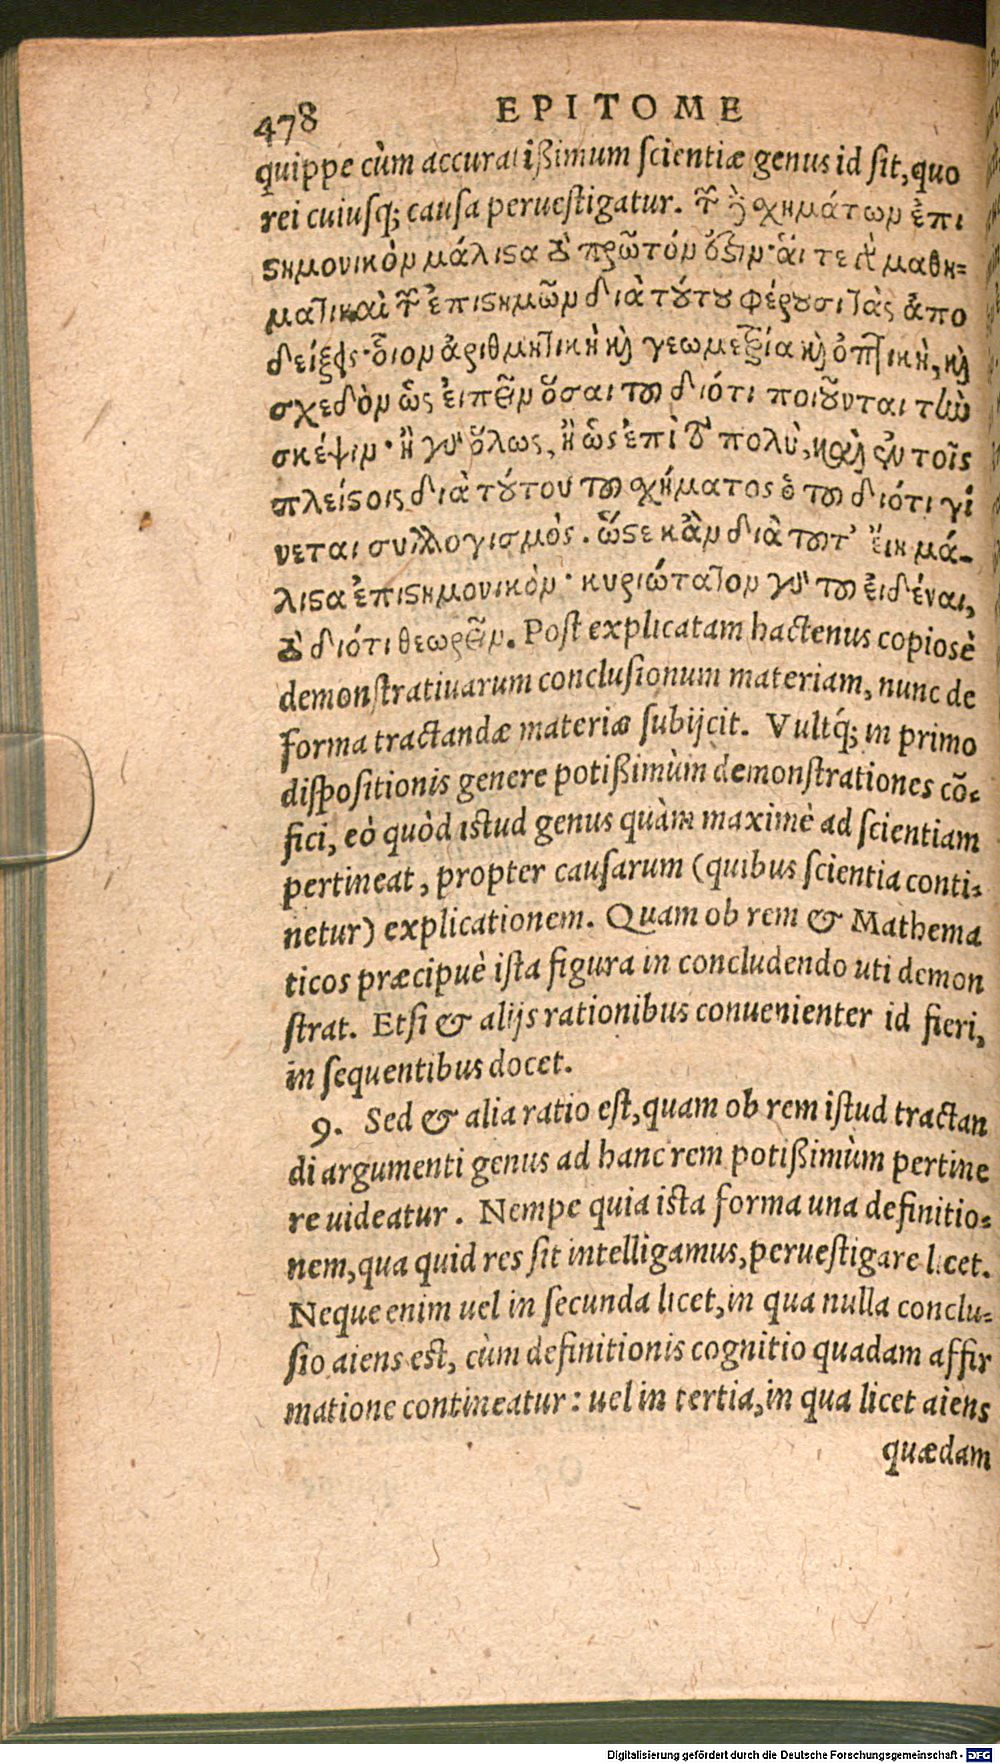 478 EPITOME
quippe cùm accuratißimum scientiæ genus id sit, quo
rei cuiusq; causa peruestigatur. τῶν δὲ σχημάτων ἐπι
στημονικὸν μάλιστα τὸ πρῶτόν ὅξιν· αἵ τε γὰρ μαθη=
ματικαὶ τῶν ἐπιστημῶν διὰ τούτου φέρουσι τὰς ἀπο
δείξεις· οἷον ἀριθμητικὴ καὶ γεωμετρία καὶ ὀπτικὴ, καὶ
σχεδὸν ὡς εἰπεῖν ὅσαι τοῦ διότι ποιοῦνται τὴν
σκέψιν· ἢ γὰρ ὅλως, ἢ ὡς ἐπὶ τὸ πολὺ, καὶ ἐν τοῖς
πλείστοις διὰ τούτου τοῦ σχήματος ὁ τοῦ διότι γί
νεται συλλογισμός. ὥστε κἂν διὰ τοῦτ’ εἴη μά-
λιστα ἐπιστημονικόν· κυριώτατον γὰρ τοῦ εἰδέναι,
τὸ διότι θεωρεῖν. Post explicatam hactenus copiosè
demonstratiuarum conclusionum materiam, nunc de
forma tractandæ materiæ subijcit. Vultq́; in primo
dispositionis genere potißimùm demonstrationes cō=
fici, eò quòd istud genus quàm maximè ad scientiam
pertineat, propter causarum (quibus scientia conti=
netur) explicationem. Quam ob rem & Mathema
ticos præcipuè ista figura in concludendo uti demon
strat. Etsi & alijs rationibus conuenienter id fieri,
in sequentibus docet.
9. Sed & alia ratio est, quam ob rem istud tractan
di argumenti genus ad hanc rem potißimùm pertine
re uideatur. Nempe quia ista forma una definitio=
nem, qua quid res sit intelligamus, peruestigare licet.
Neque enim uel in secunda licet, in qua nulla conclu=
sio aiens est, cùm definitionis cognitio quadam affir
matione contineatur: uel in tertia, in qua licet aiens
quædam
Digitalisierung gefördert durch die Deutsche Forschungsgemeinschaft - DFG